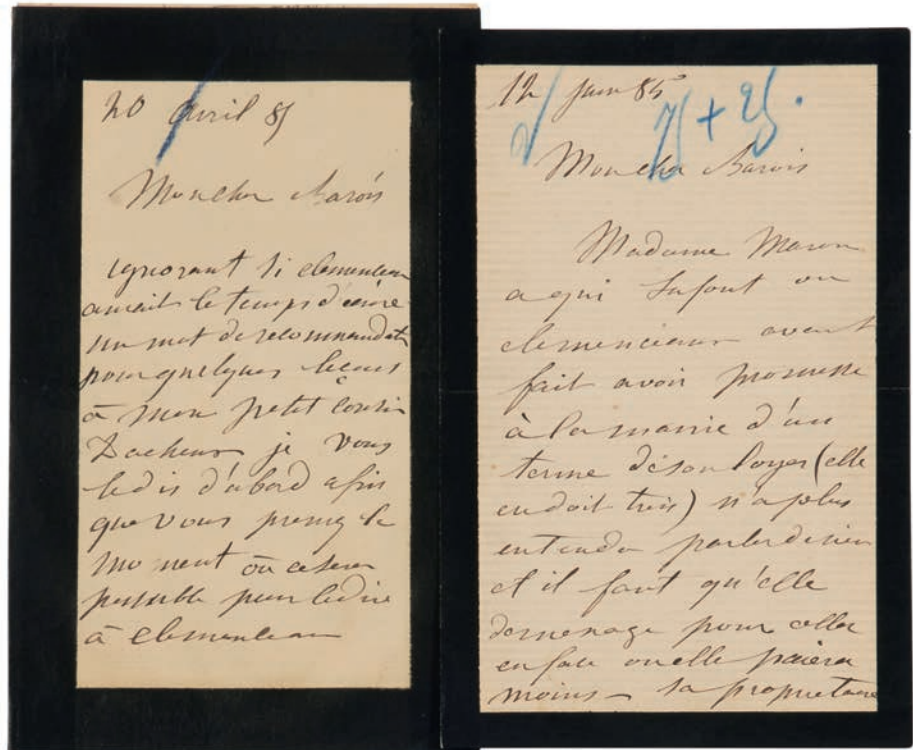 20 avril 85
Mon cher Barois
ignorant si clemenceau
aurait le temps d'ecrire
un mot de recommandat
pour quelques leçons
à mon petit cousin
je vous
le dis d'abord afin
que vous preniez le
moment où ce sera
possible pour le dire
à clemenceau
12 juin 85
Mon cher Barois
Madame Maron
a qui Lafont ou
clemenceau avait
fait avoir promesse
à la mairie d'un
terme de son loyer (elle
en doit trois) n'a plus
entendu parler de rien
et il faut qu'elle
demenage pour aller
en face ou elle paiera
moins – sa proprietaire